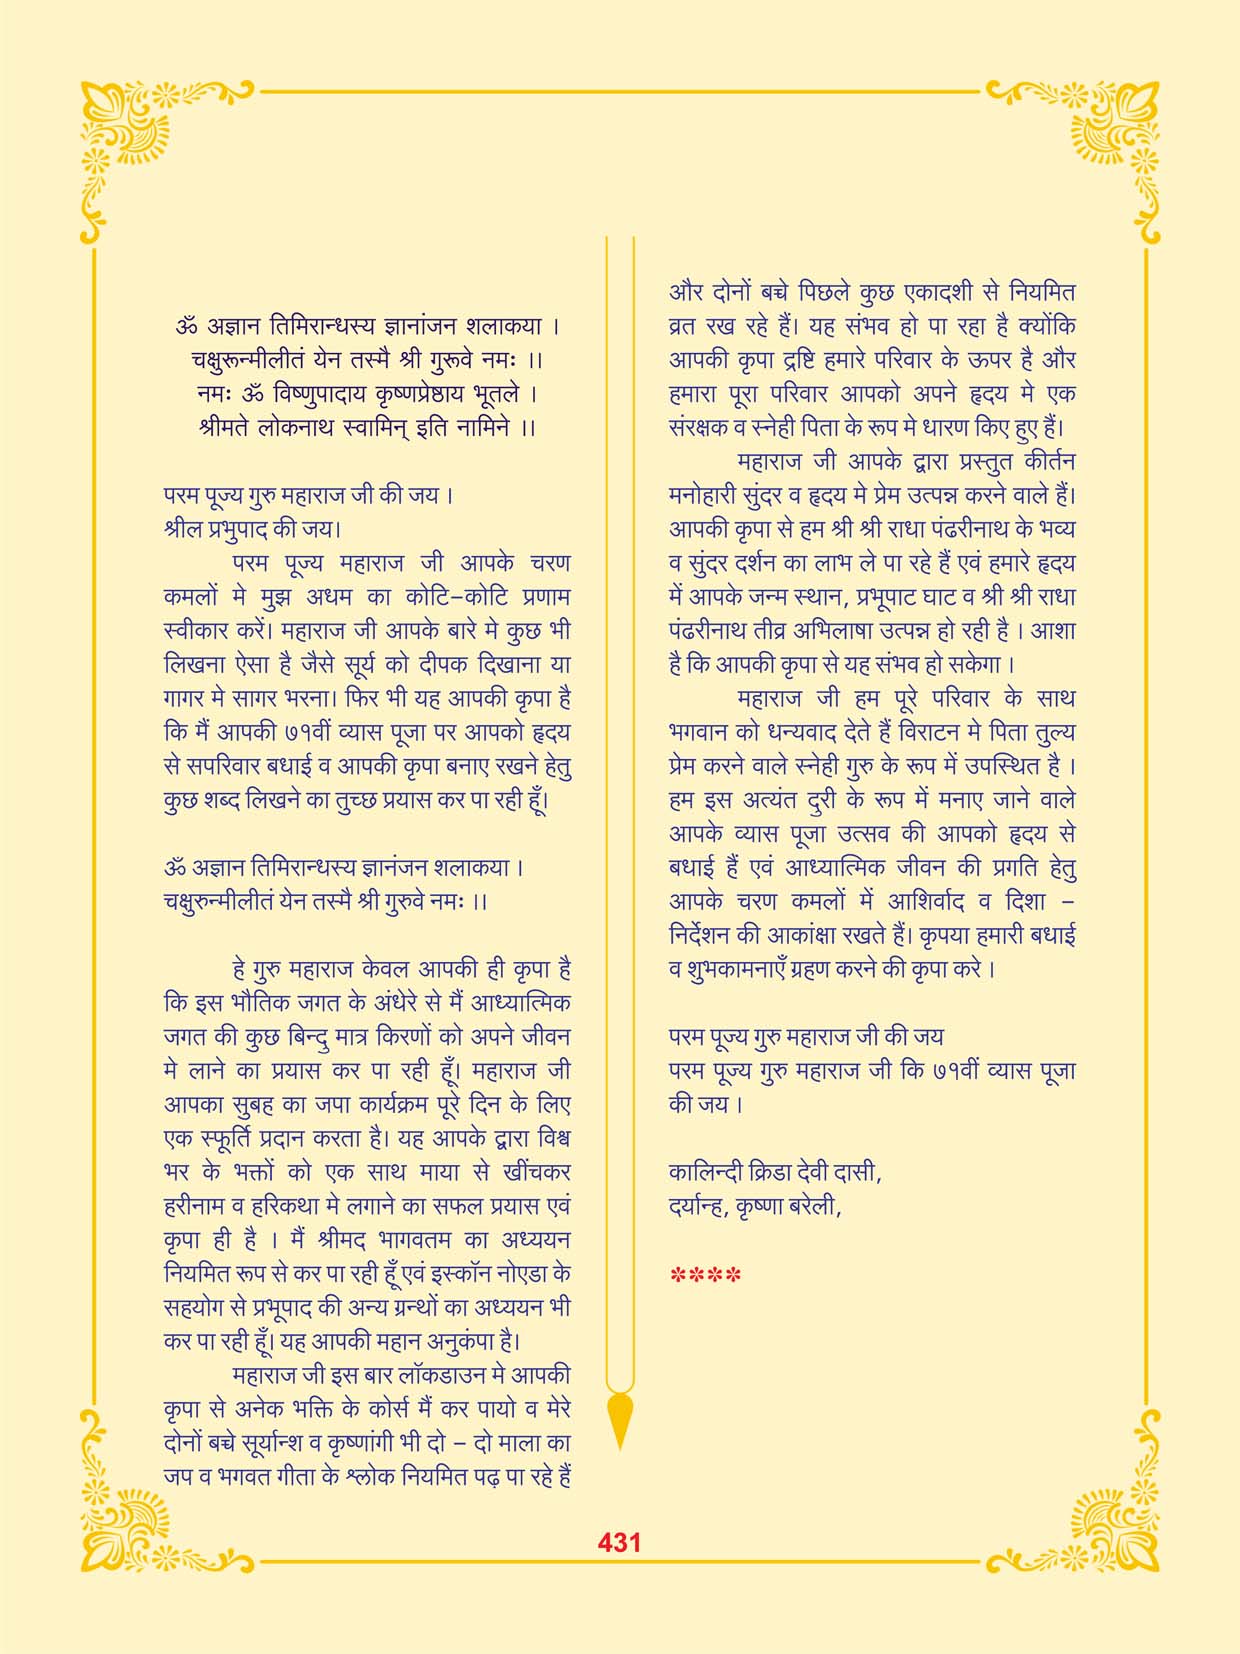 ॐ अज्ञान तिमिरान्धस्य ज्ञानांजन शलाकया ।
चक्षुरून्मीलीतं येन तस्मै श्री गुरूवे नमः ।।
नमः ॐ विष्णुपादाय कृष्णप्रेष्ठाय भूतले ।
श्रीमते लोकनाथ स्वामिन् इति नामिने ।।
परम पूज्य गुरु महाराज जी की जय ।
श्रील प्रभुपाद की जय।
परम पूज्य महाराज जी आपके चरण
कमलों मे मुझ अधम का कोटि–कोटि प्रणाम
स्वीकार करें। महाराज जी आपके बारे मे कुछ भी
लिखना ऐसा है जैसे सूर्य को दीपक दिखाना या
गागर मे सागर भरना। फिर भी यह आपकी कृपा है
कि मैं आपकी ७१वीं व्यास पूजा पर आपको हृदय
से सपरिवार बधाई व आपकी कृपा बनाए रखने हेतु
कुछ शब्द लिखने का तुच्छ प्रयास कर पा रही हूँ।
ॐ अज्ञान तिमिरान्धस्य ज्ञानंजन शलाकया ।
चक्षुरुन्मीलीतं येन तस्मै श्री गुरुवे नमः ।।
हे गुरु महाराज केवल आपकी ही कृपा है
कि इस भौतिक जगत के अंधेरे से मैं आध्यात्मिक
जगत की कुछ बिन्दु मात्र किरणों को अपने जीवन
मे लाने का प्रयास कर पा रही हूँ। महाराज जी
आपका सुबह का जपा कार्यक्रम पूरे दिन के लिए
एक स्फूर्ति प्रदान करता है। यह आपके द्वारा विश्व
भर के भक्तों को एक साथ माया से खींचकर
हरीनाम व हरिकथा मे लगाने का सफल प्रयास एवं
कृपा ही है । मैं श्रीमद भागवतम का अध्ययन
नियमित रूप से कर पा रही हूँ एवं इस्कॉन नोएडा के
सहयोग से प्रभूपाद की अन्य ग्रन्थों का अध्ययन भी
कर पा रही हूँ। यह आपकी महान अनुकंपा है।
महाराज जी इस बार लॉकडाउन मे आपकी
कृपा से अनेक भक्ति के कोर्स मैं कर पायो व मेरे
दोनों बच्चे सूर्यान्श व कृष्णांगी भी दो – दो माला का
जप व भगवत गीता के श्लोक नियमित पढ़ पा रहे हैं
और दोनों बच्चे पिछले कुछ एकादशी से नियमित
व्रत रख रहे हैं। यह संभव हो पा रहा है क्योंकि
आपकी कृपा द्रष्टि हमारे परिवार के ऊपर है और
हमारा पूरा परिवार आपको अपने हृदय मे एक
संरक्षक व स्नेही पिता के रूप मे धारण किए हुए हैं।
महाराज जी आपके द्वारा प्रस्तुत कीर्तन
मनोहारी सुंदर व हृदय मे प्रेम उत्पन्न करने वाले हैं।
आपकी कृपा से हम श्री श्री राधा पंढरीनाथ के भव्य
व सुंदर दर्शन का लाभ ले पा रहे हैं एवं हमारे हृदय
में आपके जन्म स्थान, प्रभूपाट घाट व श्री श्री राधा
पंढरीनाथ तीव्र अभिलाषा उत्पन्न हो रही है । आशा
है कि आपकी कृपा से यह संभव हो सकेगा ।
महाराज जी हम पूरे परिवार के साथ
भगवान को धन्यवाद देते हैं विराटन मे पिता तुल्य
प्रेम करने वाले स्नेही गुरु के रूप में उपस्थित है ।
हम इस अत्यंत दुरी के रूप में मनाए जाने वाले
आपके व्यास पूजा उत्सव की आपको हृदय से
बधाई हैं एवं आध्यात्मिक जीवन की प्रगति हेतु
आपके चरण कमलों में आशिर्वाद व दिशा –
निर्देशन की आकांक्षा रखते हैं। कृपया हमारी बधाई
व शुभकामनाएँ ग्रहण करने की कृपा करे ।
परम पूज्य गुरु महाराज जी की जय
परम पूज्य गुरु महाराज जी कि ७१वीं व्यास पूजा
की जय ।
कालिन्दी क्रिडा देवी दासी,
दर्यान्ह, कृष्णा बरेली,
****
431